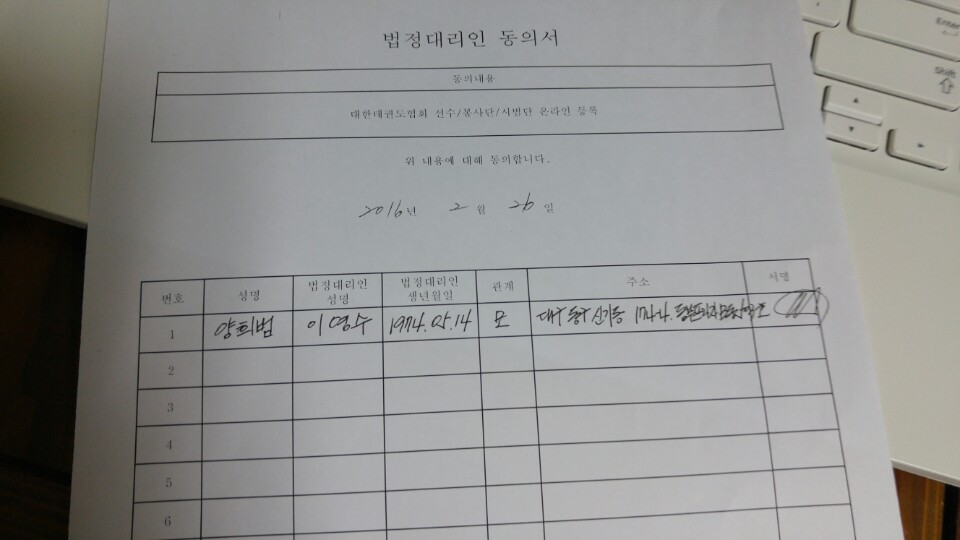 법정대리인 동의서
동의내용
대한태권도협회 선수/봉사단/시범단 온라인 등록
위 내용에 대해 동의합니다.
2016년 2월 26일
번호 성명 법정대리인 성명 법정대리인 생년월일 관계 주소 서명
1 양희범 이영수 1974.05.14 모 대구 동구 신기동
2
3
4
5
6
Enter
Shift